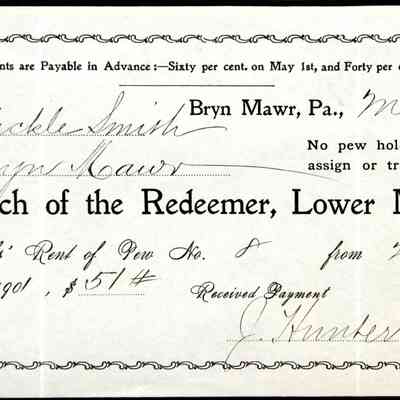 nts are Payable in Advance:—Sixty per cent. on May 1st, and Forty per
Bryn Mawr, Pa., M
ickle Smith
No pew hol
yn Mawr
assign or tr
ch of the Redeemer, Lower M
Rent of Pew No. 8 from
1901, $ 51 #
Received Payment
J. Hunter